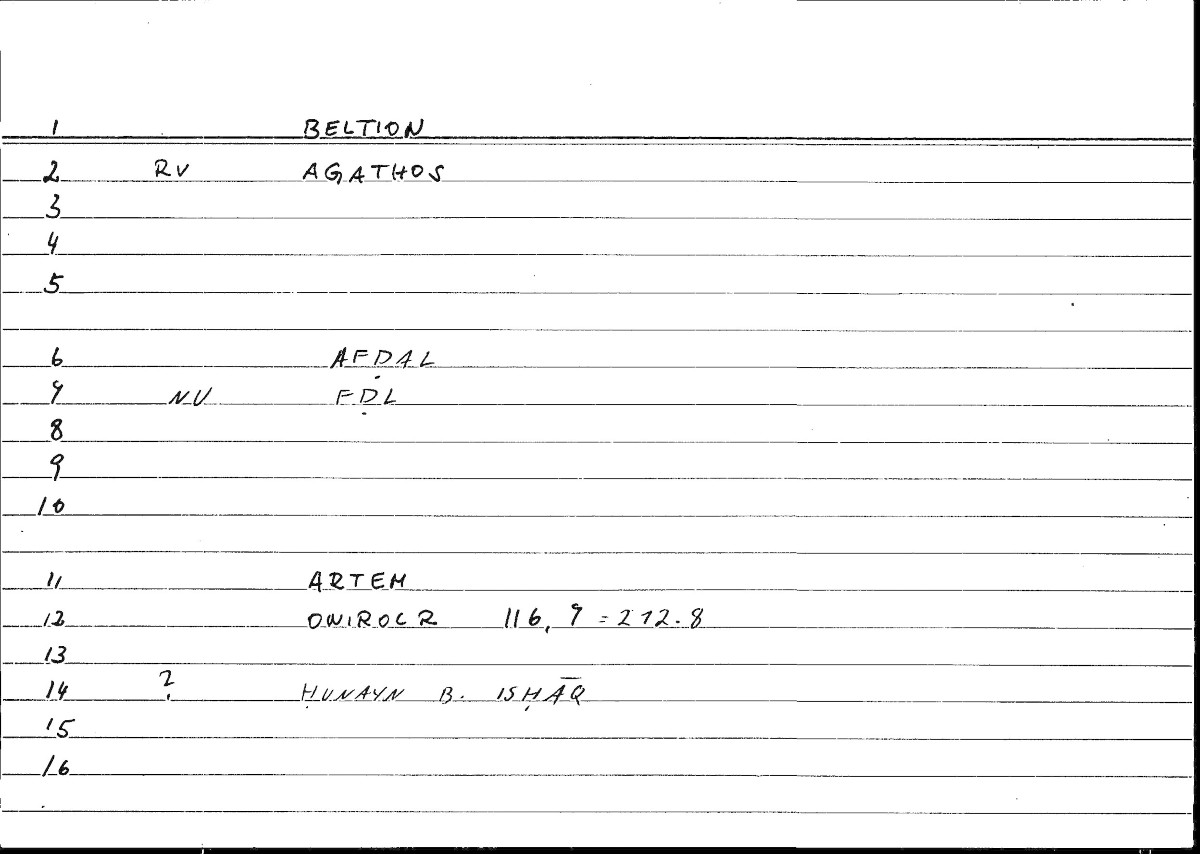 1 BELTION
2 RV AGATHOS
3
4
5
6 AFḌAL
7 NV FḌL
8
9
10
11 ARTEM
12 ONIROCR 116, 7 = 212.8
13
14 ? ḤUNAYN B. ISḤĀQ
15
16